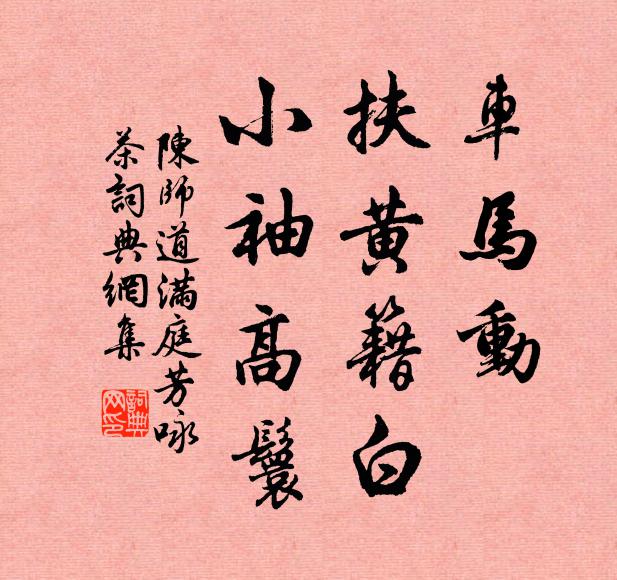 車馬動
扶黃籍白
小袖高鬟
陳師道滿庭芳咏
茶詞典網集
詞典网印